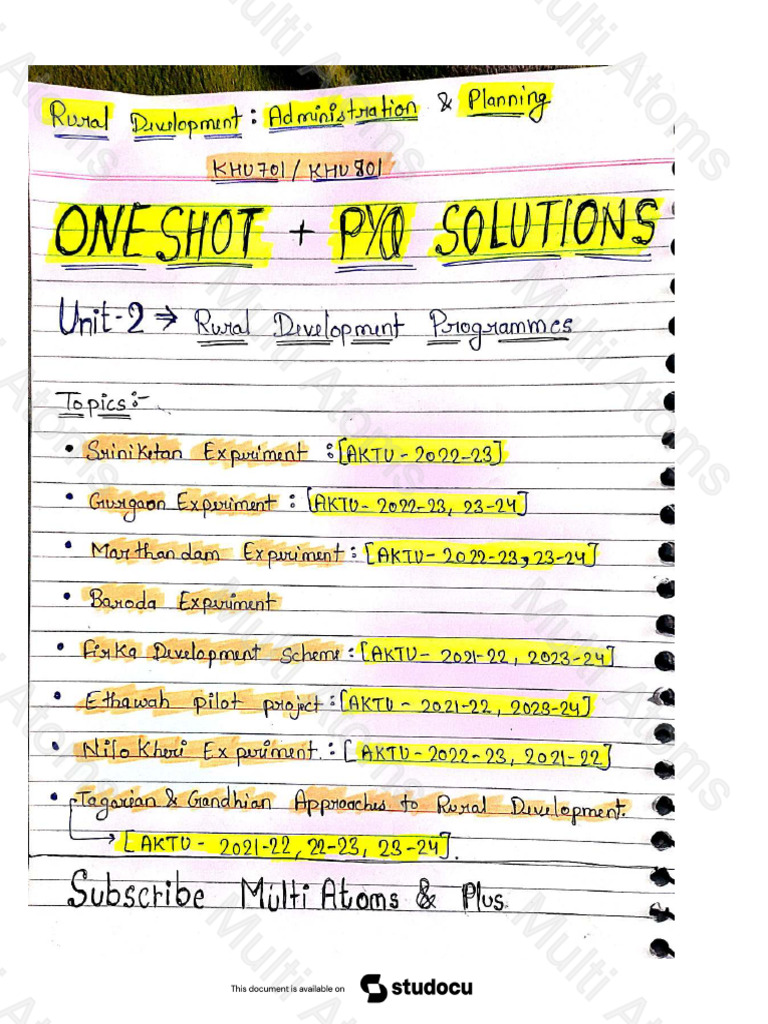 Rural Development : Administration & Planning
KHU701 / KHU801
ONE SHOT + PYQ SOLUTIONS
Unit-2 ⇒ Rural Development Programmes
Topics :-
• Sriniketan Experiment : [AKTU - 2022-23]
• Gurgaon Experiment : [AKTU - 2022-23, 23-24]
• Marthandam Experiment : [AKTU - 2022-23, 23-24]
• Baroda Experiment
• Firka Development Scheme : [AKTU - 2021-22, 2023-24]
• Ethawah pilot project : [AKTU - 2021-22, 2023-24]
• Nilo Kheri Experiment. : [AKTU - 2022-23, 2021-22]
• Tagorian & Gandhian Approaches to Rural Development.
→ [AKTU - 2021-22, 22-23, 23-24].
Subscribe Multi Atoms & Plus.
This document is available on studocu
Multi Atoms